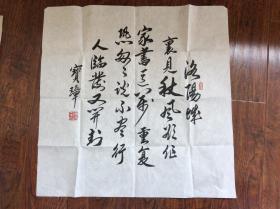 洛陽城
裏見秋風欲作
家書意萬重復
恐匆々說不盡行
人臨發又開封
寶璋